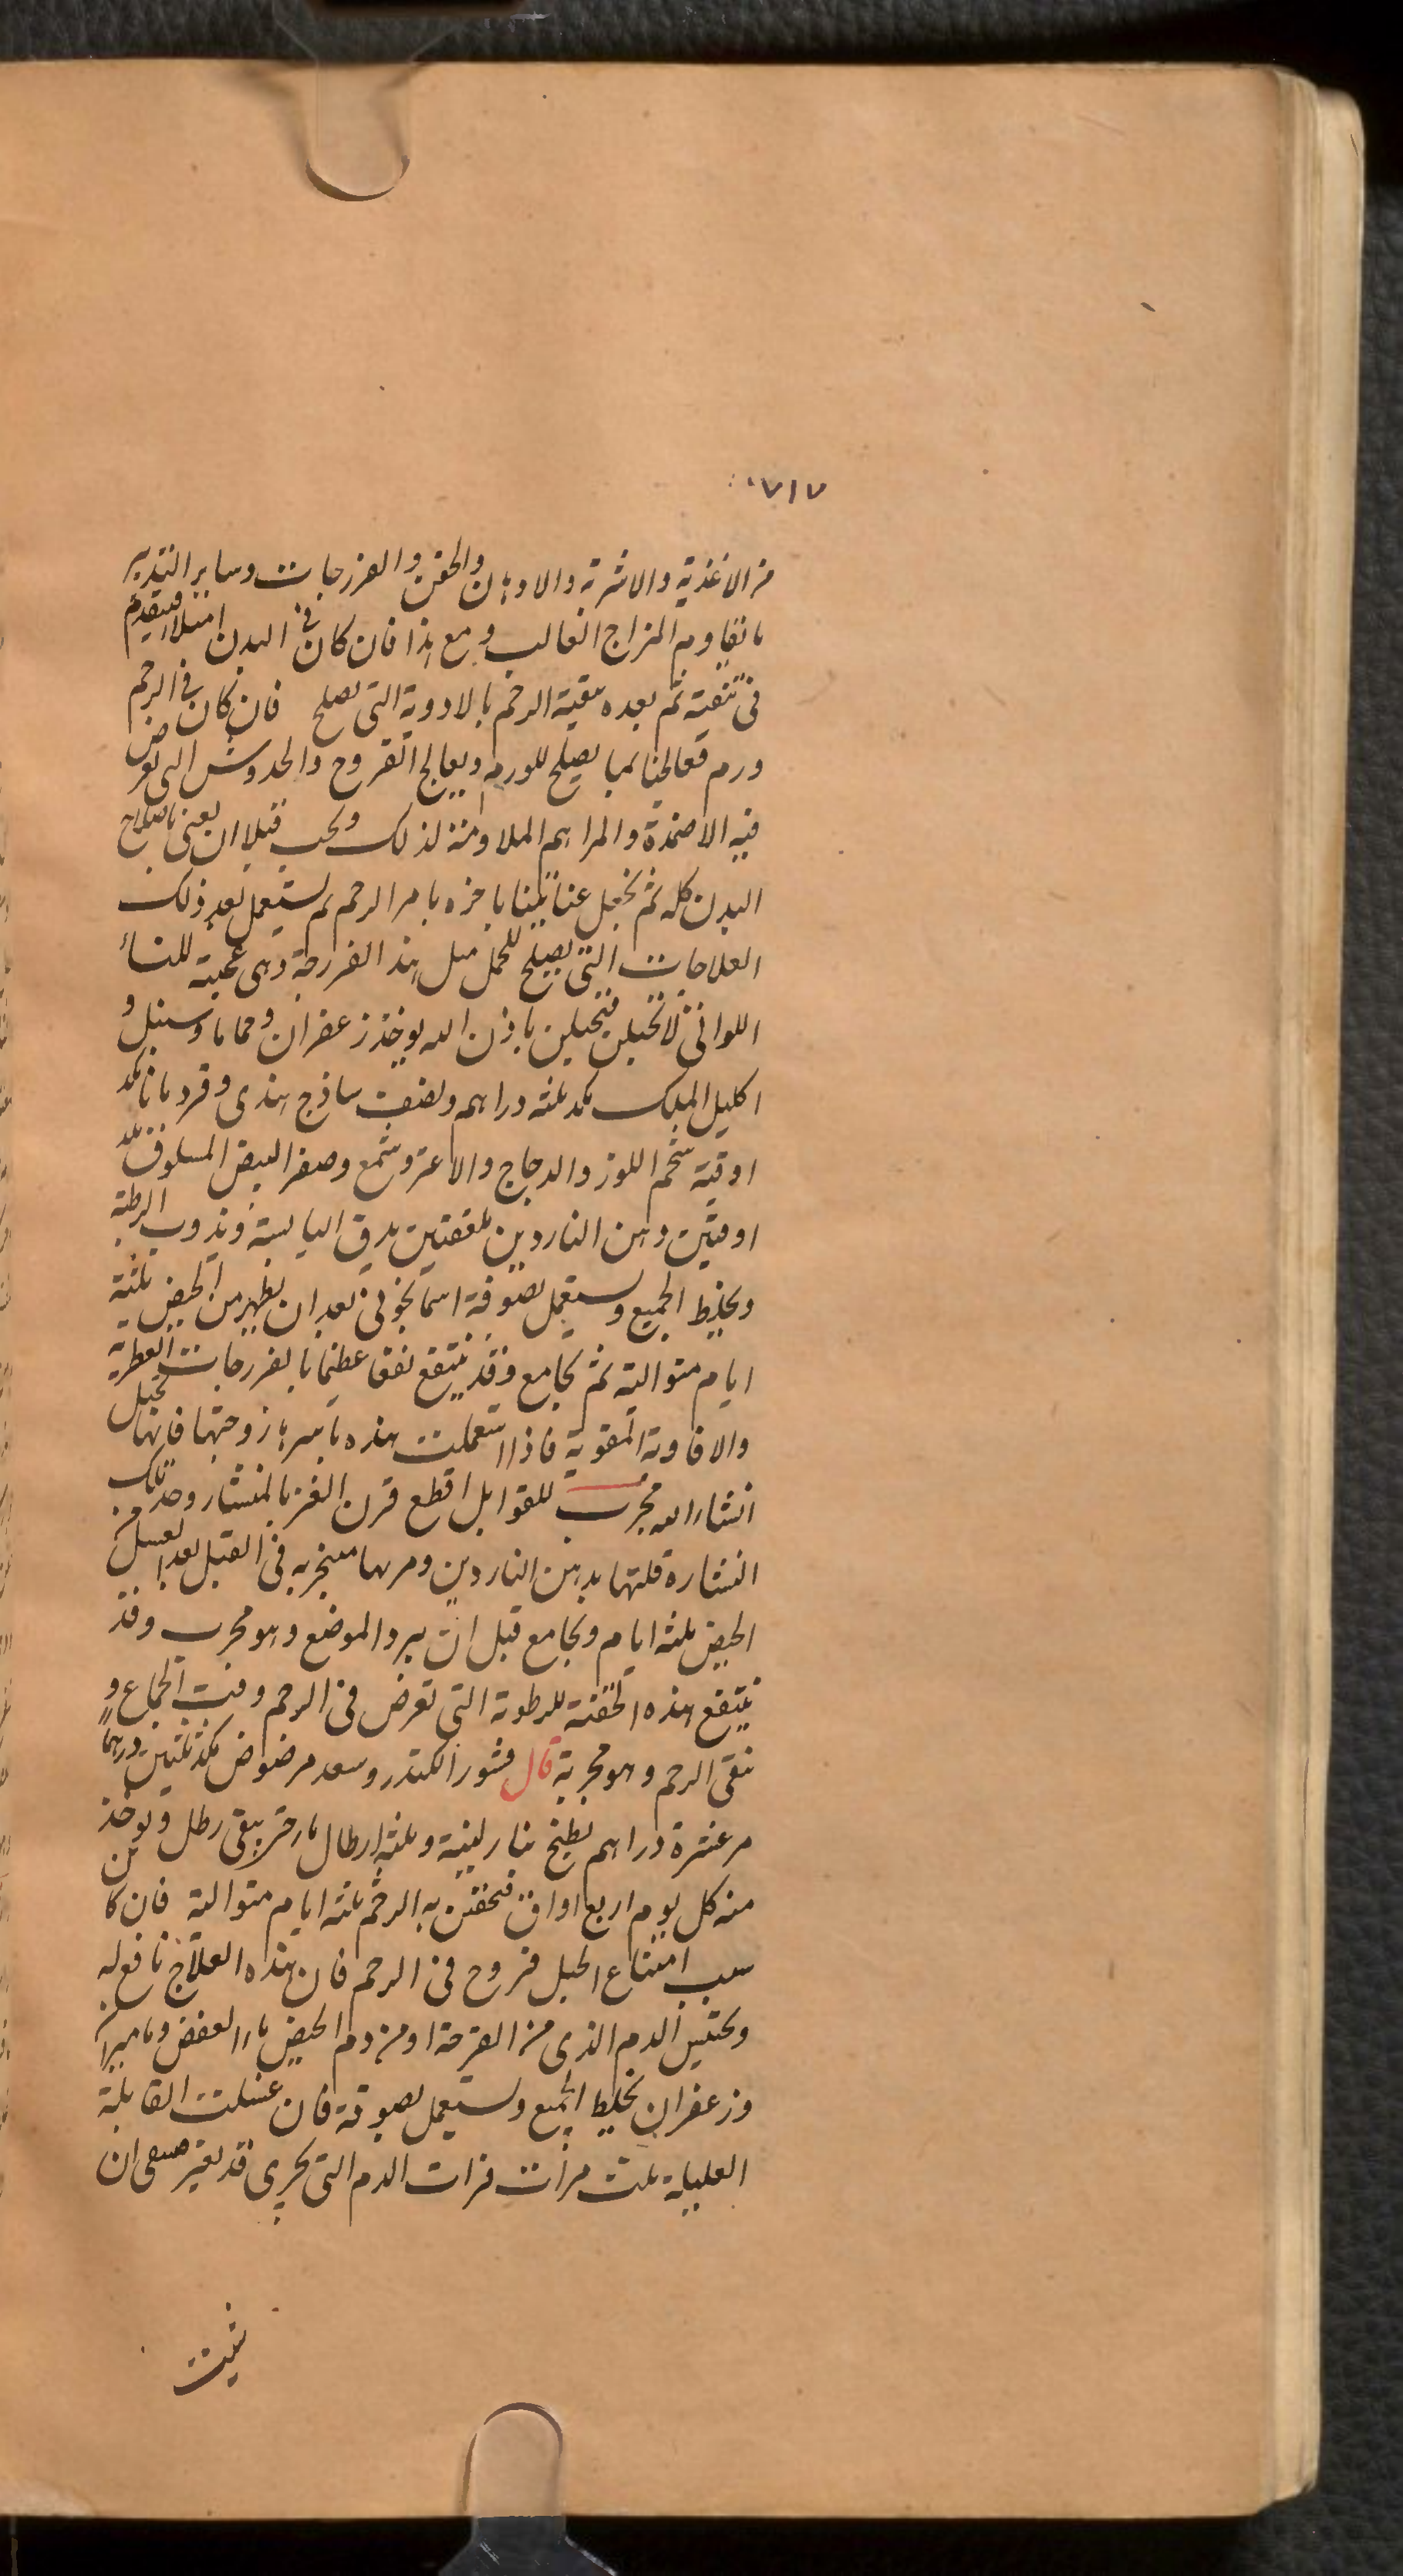 ٧١٧
من الاغذية والاشربة والادهان والحقن والفرزجات وساير التدبير
ما يقاوم المزاج الغالب ومع هذا فان كان فى البدن امتلا فيتقدم
فى تنقيته ثم بعده بتنقية الرحم بالادوية التى تصلح فان كان فى الرحم
ورم فعالجنا بما يصلح للورم ويعالج القروح والخدوش التى تعرض
فيه الاضمدة والمراهم الملاومة لذلك ويجب قبلا ان يعنى باصلاح
البدن كله ثم نجعل عنايتنا باخره بامر الرحم ثم يستعمل بعد ذلك
العلاجات التى يصلح للحمل مثل هذا الفرزجة وهى عجيبة للنساء
اللواتى لا تحبلن فتحبلن باذن الله يوخذ زعفران وحماما وسنبل و
اكليل الملك مكد ثلثه دراهم ونصف ساذج هندى وقردمانا مكد
اوقية شحم اللوز والدجاج والاعز وشمع وصفر البيض المسلوق مكد
اوقيتين دهن الناردين ملعقتين يدق اليابسة ويذوب الرطبة
ويخلط الجميع ويستعمل بصوفة اسمانجونى بعد ان يطهر من الحيض ثلثة
ايام متوالية ثم تجامع وقد ينتفع نفعا عظيما بالفرزجات العطرية
والافاوية المقوية فاذا استعملت هذه باسرها زوجتها فانها تحبل
انشاء الله مجرب للقوابل اقطع قرن العنز بالمنشار وخذ تلك
النشارة فلتها بدهن الناردين ومرها يتبخر به فى القبل بعد الغسل من
الحيض ثلثه ايام وتجامع قبل ان يبرد الموضع وهو مجرب وقد
ينتفع هذه الحقنة للرطوبة التى تعرض فى الرحم وقت الجماع و
نقى الرحم وهو مجربة قال قشور الكندر وسعد مرضوض مكد ثلثين درهما
مر عشرة دراهم يطبخ بنار لينة وثلثة ارطال ماء حتى يبقى رطل ويوخذ
منه كل يوم اربع اواق فتحقن به الرحم ثلثه ايام متوالية فان كان
سبب امتناع الحبل قروح فى الرحم فان هذه العلاج نافع له
ويحتبس الدم الذى من القرحة او من دم الحيض ماء العفص وماميران
وزعفران يخلط الجميع ويستعمل بصوفة فان غسلت القابلة
العليلة ثلث مرات فرات الدم التى يجرى قد تغير فينبغى ان